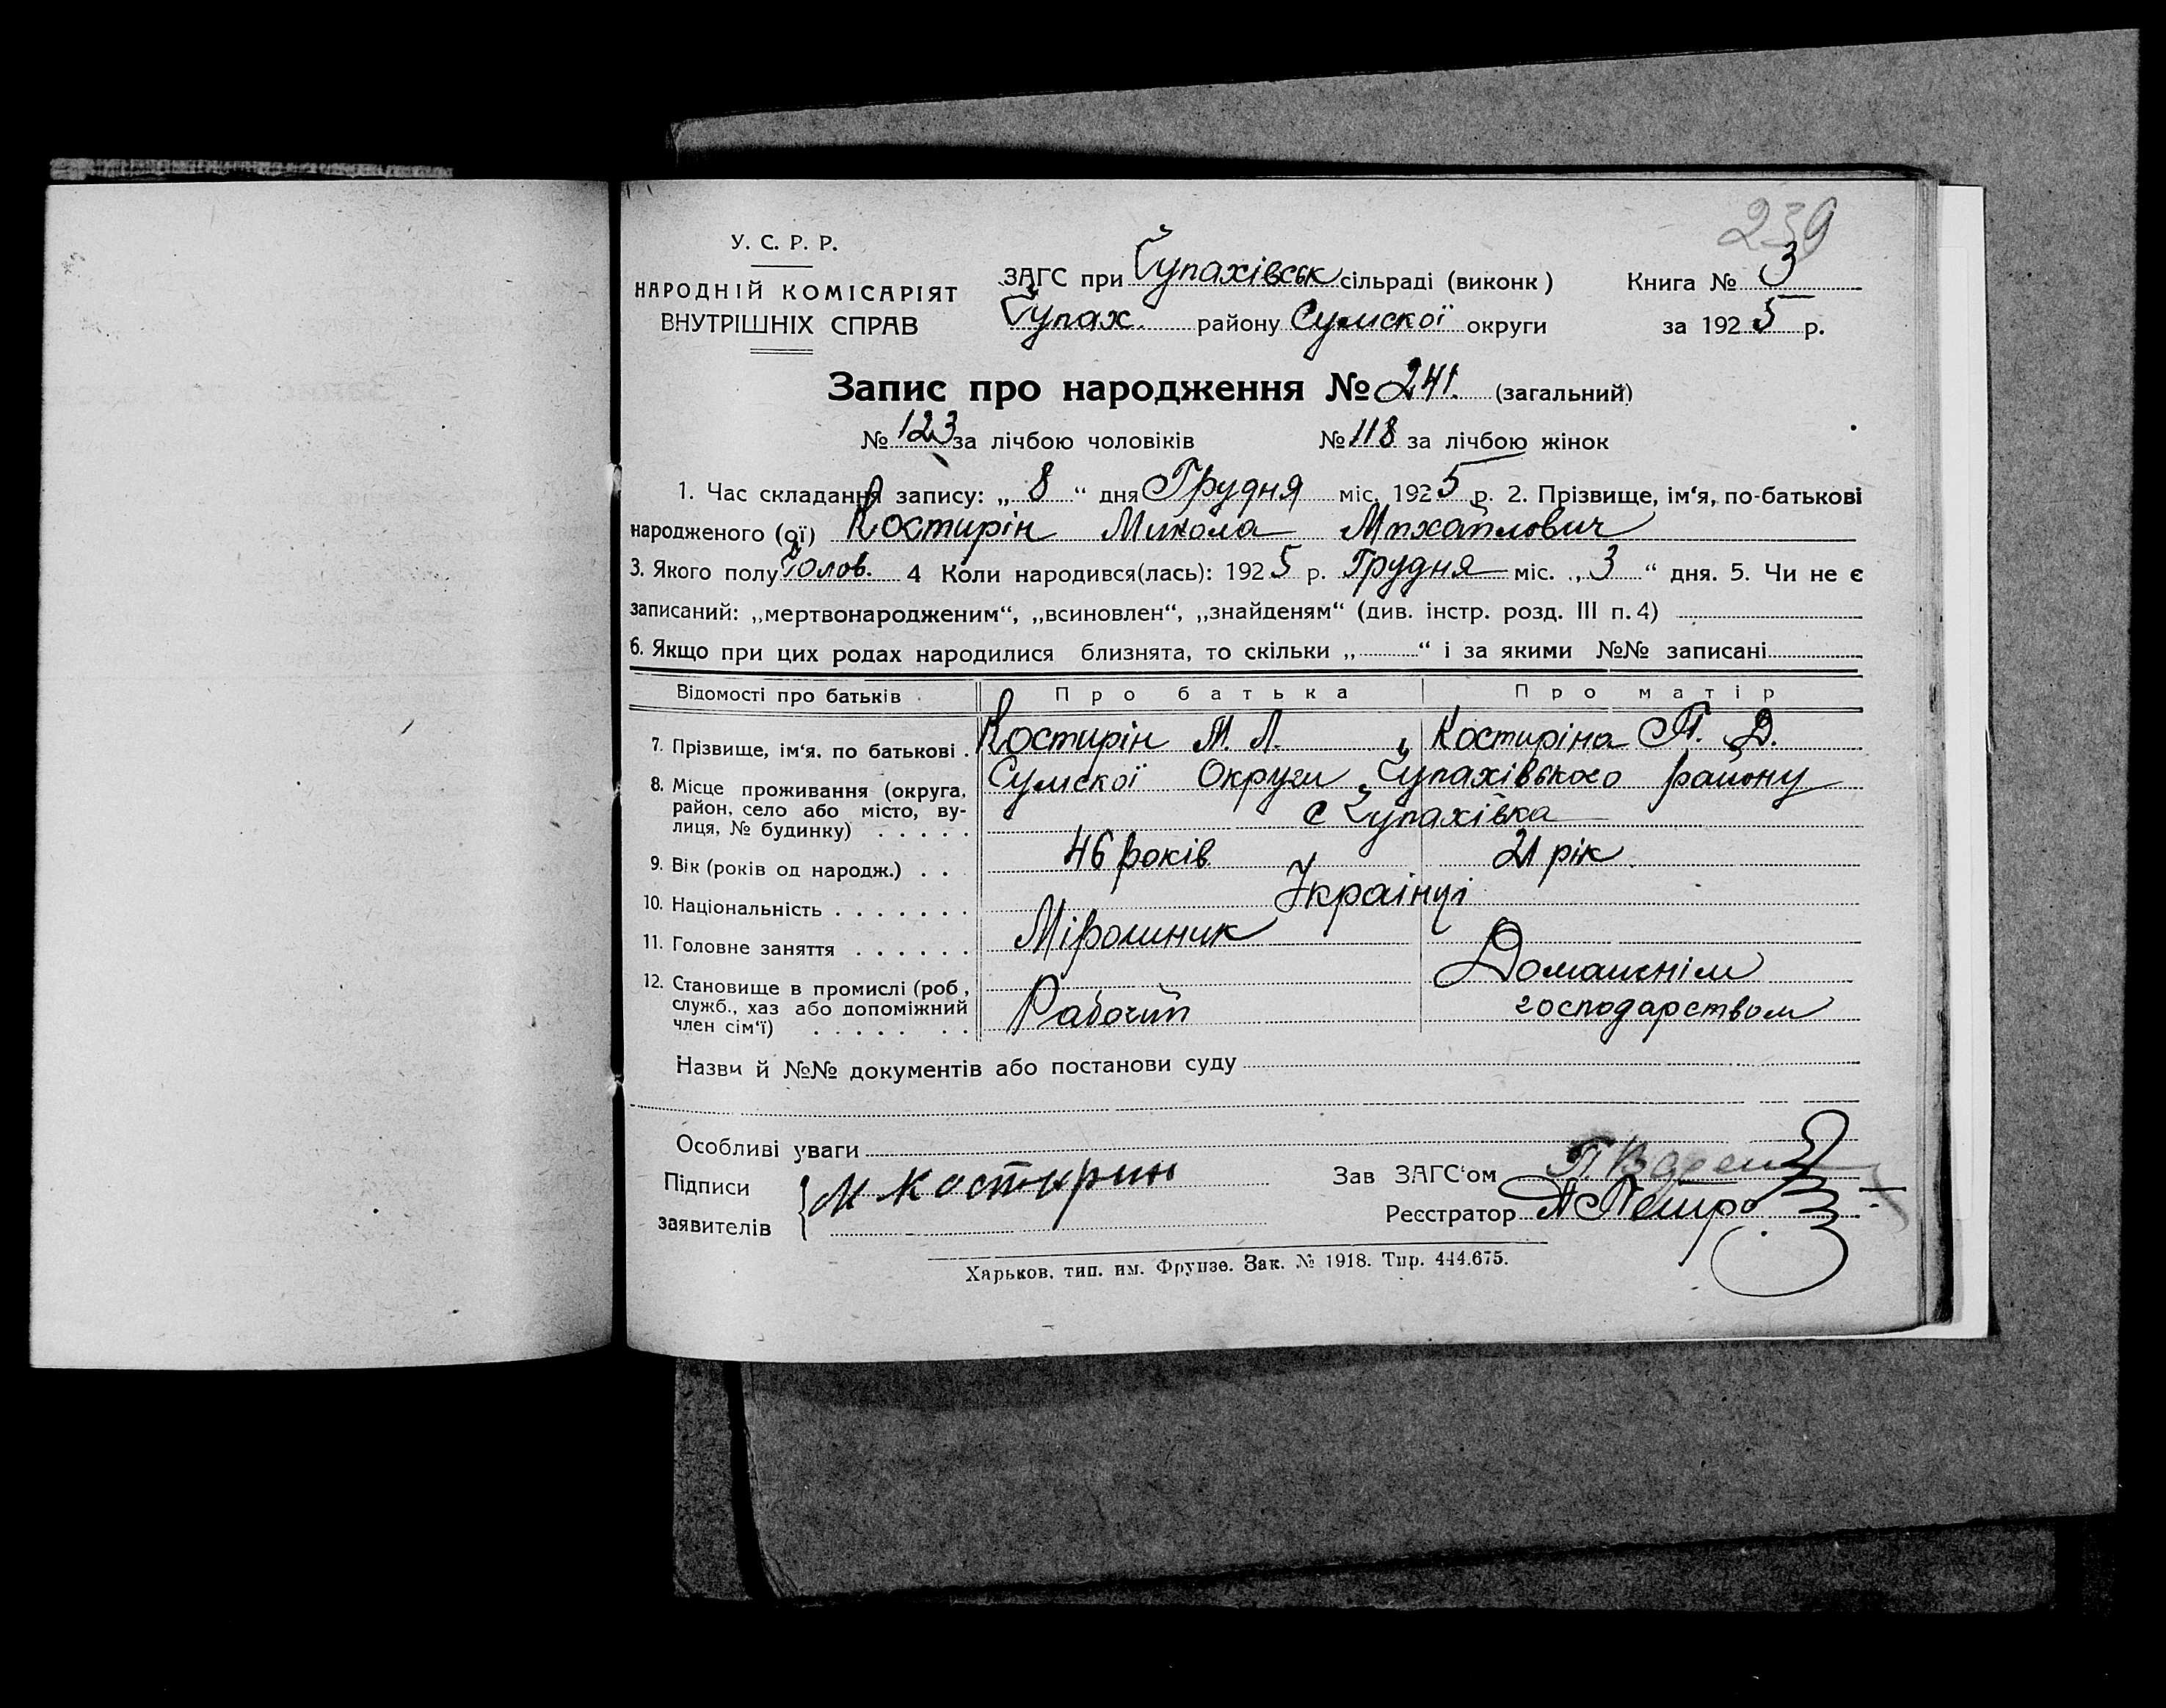 239
У. С. Р. Р.
НАРОДНІЙ КОМІСАРІЯТ
ВНУТРІШНІХ СПРАВ
ЗАГС при Чупахівськ сільраді (виконк)
Книга № 3
Чупах. району Сумскої округи
за 1925 р.
Запис про народження № 241. (загальний)
№ 123 за лічбою чоловіків № 118 за лічбою жінок
1. Час складання запису: „ 8 “ дня Грудня міс. 1925 р. 2. Прізвище, ім‘я, по-батькові
народженого (ої) Костирін Микола Михайлович
3. Якого полу Чолов. 4 Коли народився(лась): 1925 р. Грудня міс. „ 3 “ дня. 5. Чи не є
записаний: „мертвонародженим“, „всиновлен“, „знайденям“ (див. інстр. розд. III п. 4)
6. Якщо при цих родах народилися близнята, то скільки „ “ і за якими №№ записані
Відомості про батьків Про батька Про матір
7. Прізвище, ім‘я. по батькові . Костирін М. Л. Костиріна П. Д.
8. Місце проживання (округа, Сумскої Округи Чупахівського району
район, село або місто, ву-
лиця, № будинку) . . . . . с Чупахівка
9. Вік (років од народж.) . . . 46 років 21 рік
10. Національність . . . . . . . Украінці
11. Головне заняття . . . . . . Мірошник Домашнім
12. Становище в промислі (роб,
служб., хаз або допоміжний Рабочий господарством
член сім‘ї) . . . . . . .
Назви й №№ документів або постанови суду
Особливі уваги
Підписи
заявителів
М Костырин
Зав ЗАГС‘ом
Реєстратор
Харьков, тип. им. Фрунзе. Зак. № 1918. Тир. 444.675.